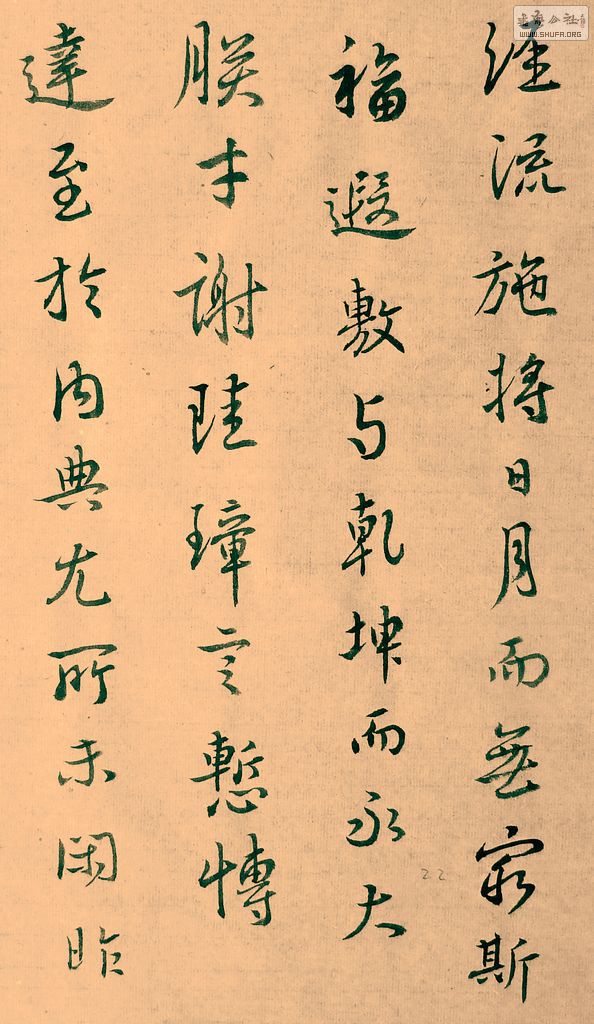 經流施將日月而無窮斯
福遐敷与乾坤而永大
朕才謝珪璋言慙博
達至於內典尤所未閑昨
22
書法公社
WWW.SHUFA.ORG